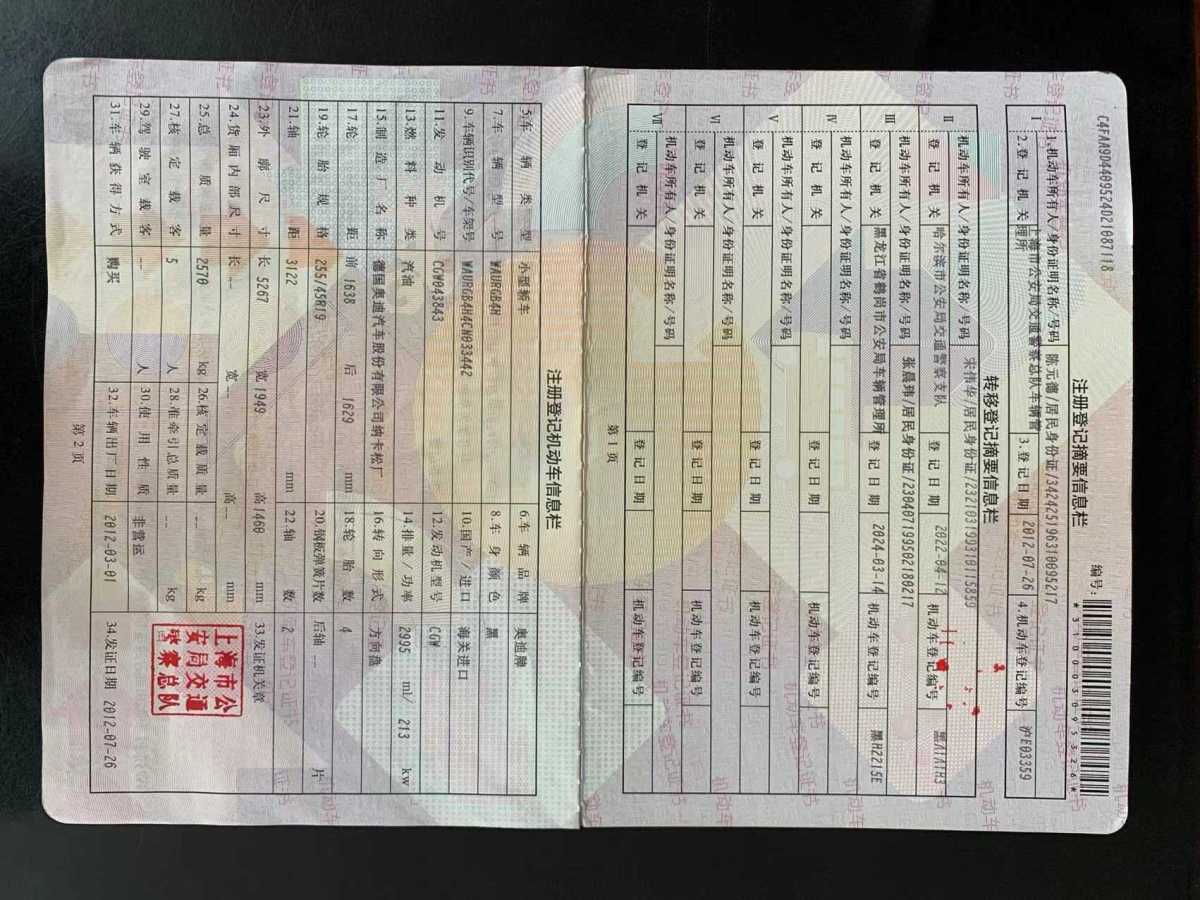 C4FAA9D44095240210871 18
编号:
*310003095326*
注册登记摘要信息栏
Ⅰ 1.机动车所有人/身份证明名称/号码 陈元德/居民身份证/342425196310095217
2.登记机关 上海市公安局交通警察总队车辆管理所 3.登记日期 2012-07-26 4.机动车登记编号 沪E03359
转移登记摘要信息栏
Ⅱ 机动车所有人/身份证明名称/号码 宋伟华/居民身份证/232103199310115859
登记机关 哈尔滨市公安局交通警察支队 登记日期 2022-04-12 机动车登记编号 黑A1A1H3
Ⅲ 机动车所有人/身份证明名称/号码 张晨玮/居民身份证/230407199502180217
登记机关 黑龙江省鹤岗市公安局车辆管理所 登记日期 2024-03-14 机动车登记编号 黑H2215E
Ⅳ 机动车所有人/身份证明名称/号码
登记机关 登记日期 机动车登记编号
Ⅴ 机动车所有人/身份证明名称/号码
登记机关 登记日期 机动车登记编号
Ⅵ 机动车所有人/身份证明名称/号码
登记机关 登记日期 机动车登记编号
Ⅶ 机动车所有人/身份证明名称/号码
登记机关 登记日期 机动车登记编号
第 1 页
注册登记机动车信息栏
5.车辆类型 小型轿车 6.车辆品牌 奥迪牌
7.车辆型号 WAURGB4H 8.车身颜色 黑
9.车辆识别代号/车架号 WAURGB4H4CN033442 10.国产/进口 海关进口
11.发动机号 CGW043843 12.发动机型号 CGW
13.燃料种类 汽油 14.排量/功率 2995 ml/ 213 kw
15.制造厂名称 德国奥迪汽车股份有限公司纳卡松厂 16.转向形式 方向盘
17.轮距 前 1638 后 1629 mm 18.轮胎数 4
19.轮胎规格 255/45R19 20.钢板弹簧片数 后轴 -- 片
21.轴距 3122 mm 22.轴数 2
23.外廓尺寸 长 5267 宽 1949 高 1460 mm 33.发证机关章
24.货厢内部尺寸 长 -- 宽 -- 高 -- mm
25.总质量 2570 kg 26.核定载质量 -- kg
27.核定载客 5 人 28.准牵引总质量 -- kg
29.驾驶室载客 -- 人 30.使用性质 非营运
31.车辆获得方式 购买 32.车辆出厂日期 2012-03-01 34.发证日期 2012-07-26
上海市公
安局交通
警察总队
第 2 页